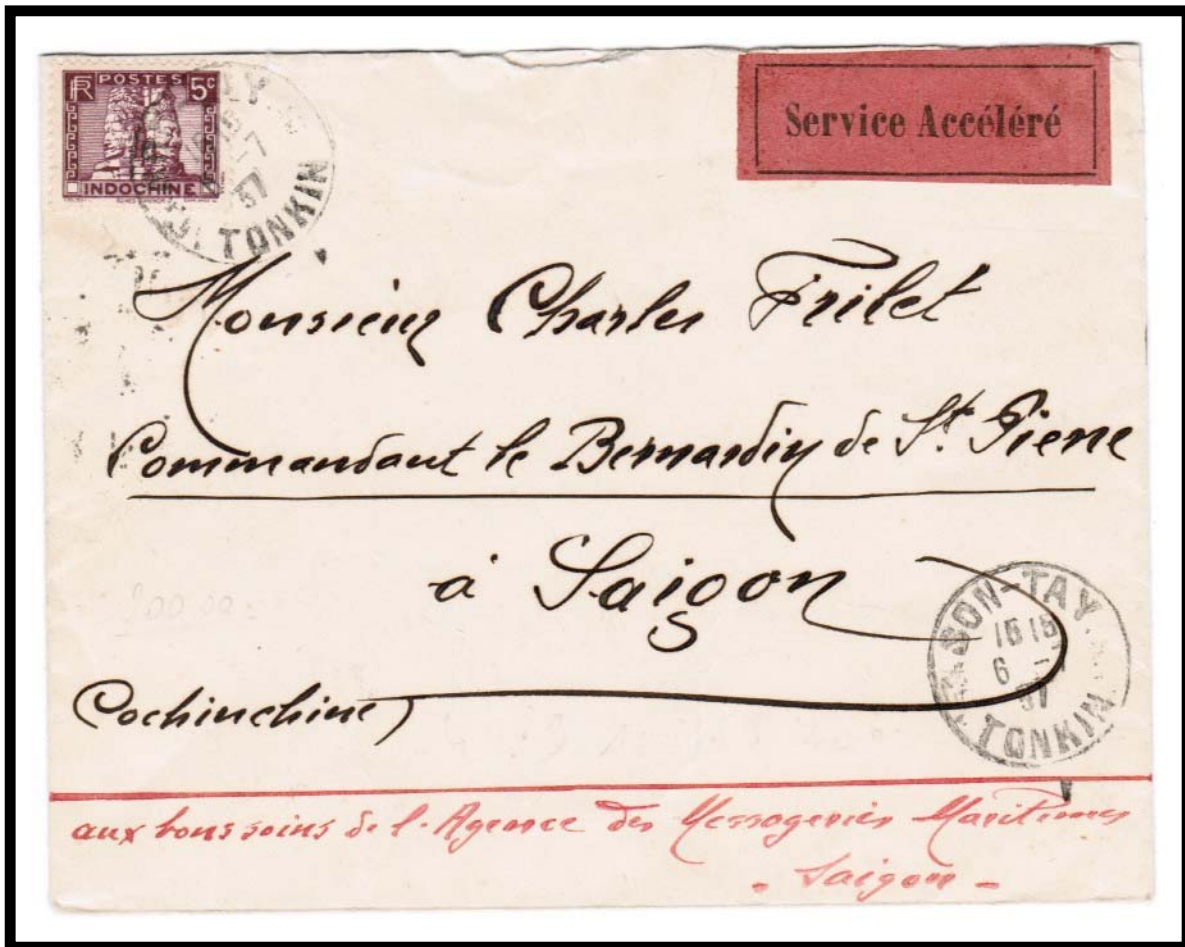 RF POSTES 5c
INDOCHINE
TONKIN
37
Service Accéléré
Monsieur Charles Frilet
Commandant le Bernardin de St. Pierre
à Saigon
Cochinchine
SON-TAY
15 15
6 -
37
TONKIN
aux bons soins de l'Agence des Messageries Maritimes
- Saigon -